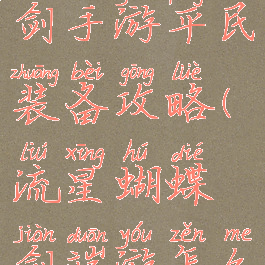 剑手游平民
zhuāng bèi gōng lüè
装备攻略(
liú xīng hú dié
流星蝴蝶
jiàn duān yóu zěn me
剑端游怎么